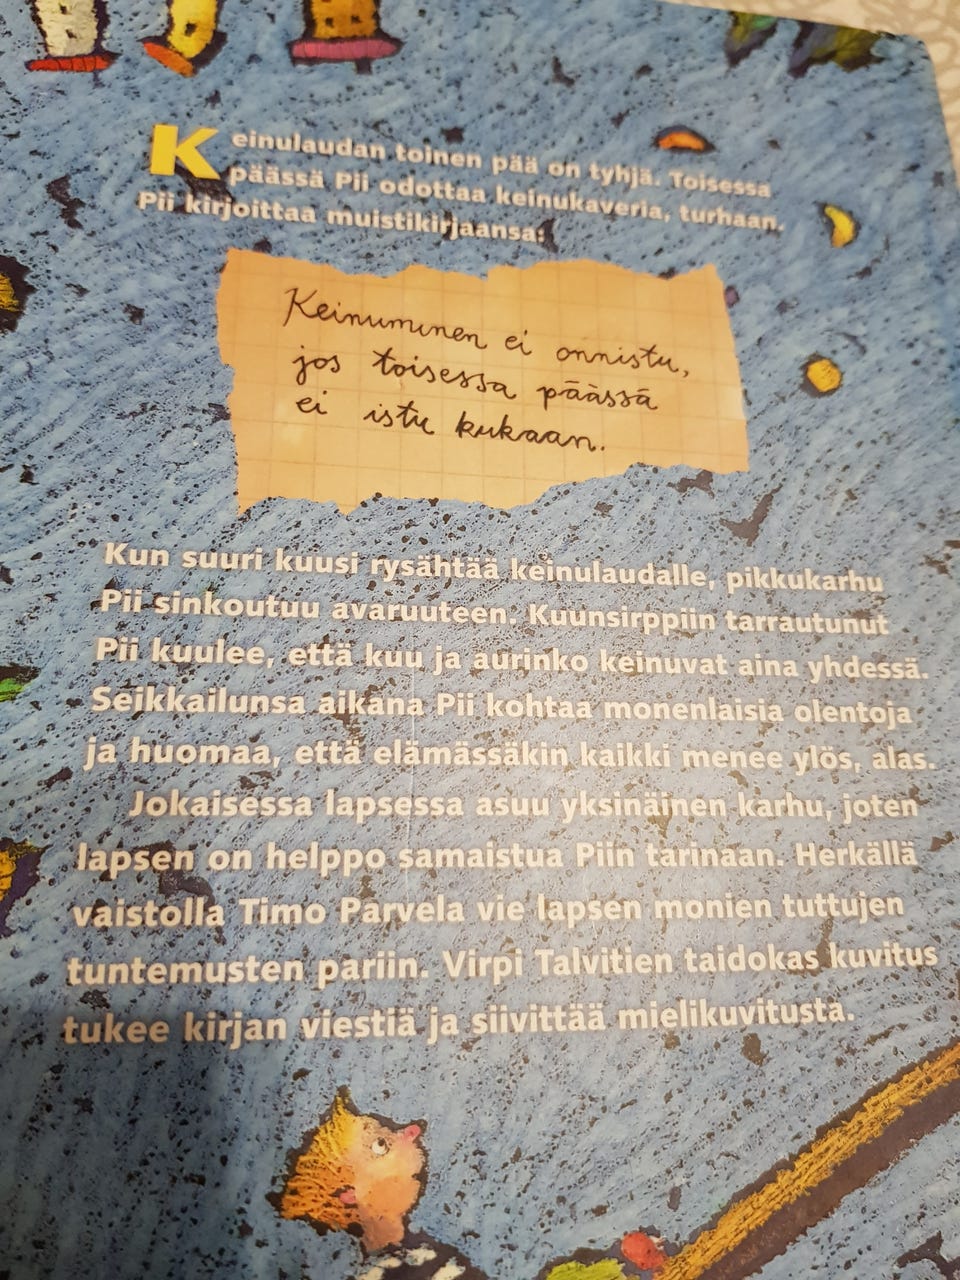 Keinulaudan toinen pää on tyhjä. Toisessa
päässä Pii odottaa keinukaveria, turhaan.
Pii kirjoittaa muistikirjaansa:
Keinuminen ei onnistu,
jos toisessa päässä
ei istu kukaan.
Kun suuri kuusi rysähtää keinulaudalle, pikkukarhu
Pii sinkoutuu avaruuteen. Kuunsirppiin tarrautunut
Pii kuulee, että kuu ja aurinko keinuvat aina yhdessä.
Seikkailunsa aikana Pii kohtaa monenlaisia olentoja
ja huomaa, että elämässäkin kaikki menee ylös, alas.
Jokaisessa lapsessa asuu yksinäinen karhu, joten
lapsen on helppo samaistua Piin tarinaan. Herkällä
vaistolla Timo Parvela vie lapsen monien tuttujen
tuntemusten pariin. Virpi Talvitien taidokas kuvitus
tukee kirjan viestiä ja siivittää mielikuvitusta.